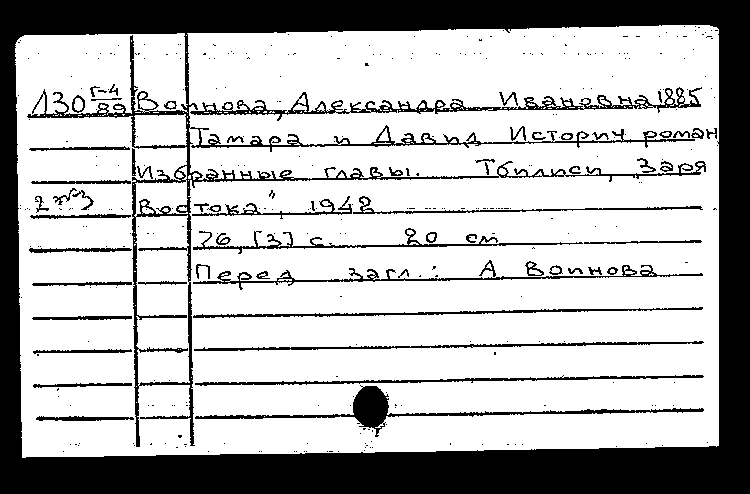 Л30 Г-4/89 Воинова, Александра Ивановна, 1885
Тамара и Давид Историч роман
Избранные главы. Тбилиси, "Заря
2 экз Востока", 1942
76, [3] с. 20 см
Перед загл.: А Воинова